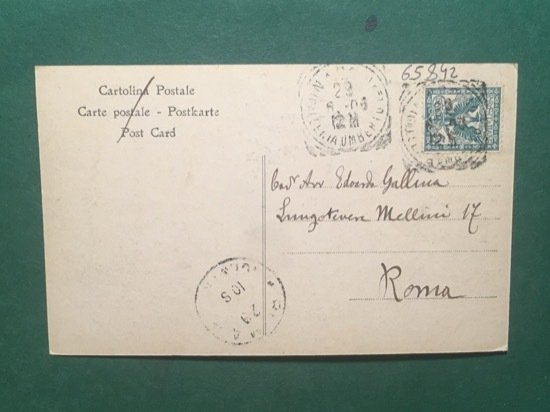 Cartolina Postale
Carte postale - Postkarte
Post Card
65842
29
12 M
GALLERIA UMBERTO I
Cav. Avv Edoardo Gallina
Lungotevere Mellini 17
Roma
10 S
29